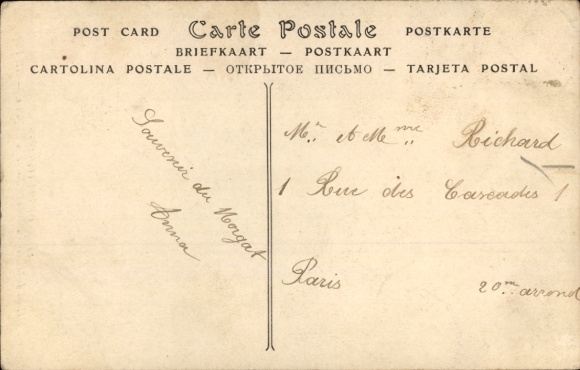 POST CARD Carte Postale POSTKARTE
BRIEFKAART — POSTKAART
CARTOLINA POSTALE — ОТКРЫТОЕ ПИСЬМО — TARJETA POSTAL
Souvenir du Morgat
Anna
Mr. et Mme. Richard
1 Rue des Cascades 1
Paris 20me arrond